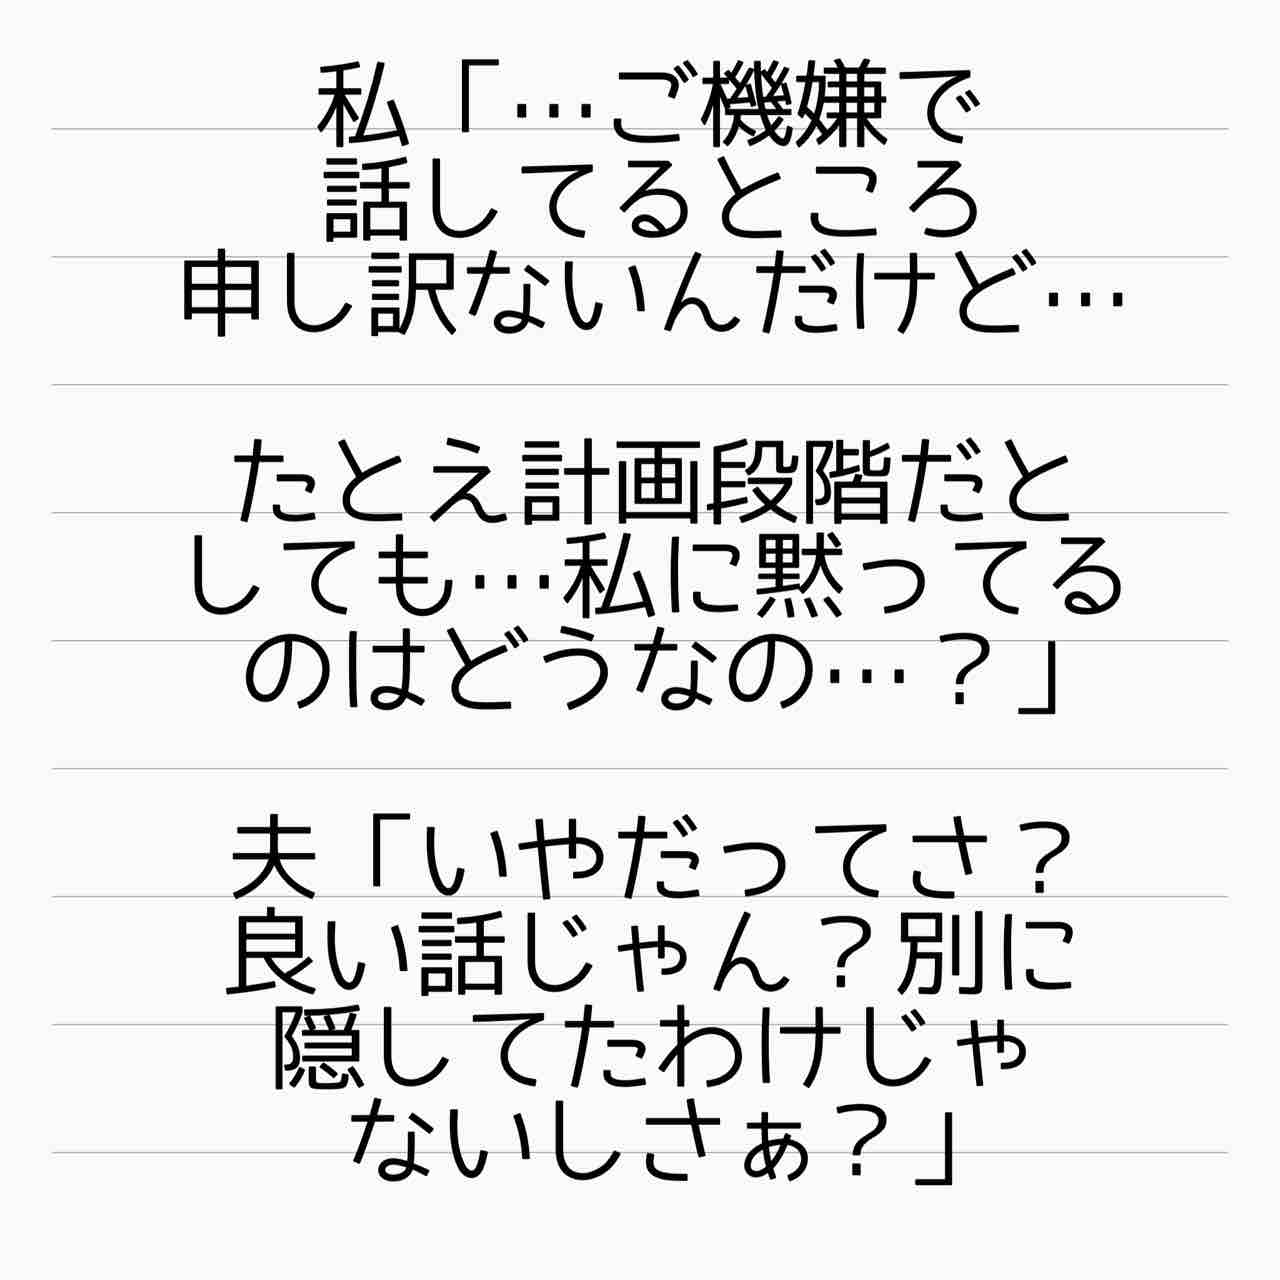 私「…ご機嫌で
話してるところ
申し訳ないんだけど…
たとえ計画段階だと
しても…私に黙ってる
のはどうなの…？」
夫「いやだってさ？
良い話じゃん？別に
隠してたわけじゃ
ないしさぁ？」